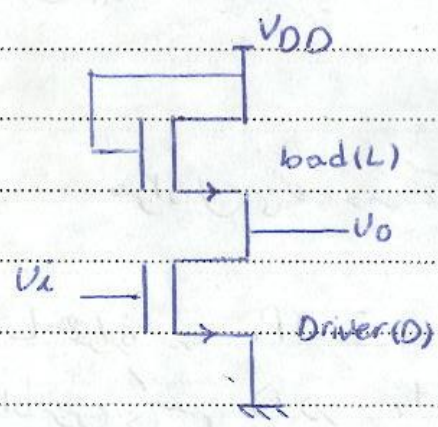 VDD
load(L)
Vo
Vi
Driver(D)